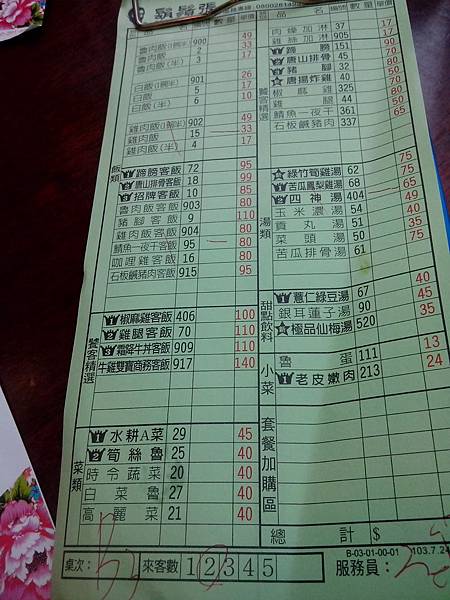 鬍鬚張
0800281
品名 編號 數量 單價
肉燥加淋 37 17
雞絲加淋 905 17
魯肉飯(1碗半) 900 49
魯肉飯 2 33
魯肉飯(半) 3 17
白飯(1碗半) 901 26
白飯 5 17
白飯(半) 6 10
雞肉飯(1碗半) 902 49
雞肉飯 15 33
雞肉飯(半) 4 17
飯類
蹄膀客飯 72 95
唐山排骨客飯 18 99
招牌客飯 10 85
魯肉飯客飯 903 80
豬腳客飯 9 110
雞肉飯客飯 904 80
鯖魚一夜干客飯 95 80
咖哩雞客飯 916 80
石板鹹豬肉客飯 915 95
饕客精選
1 椒麻雞客飯 406 100
2 雞腿客飯 70 110
3 霜降牛丼客飯 909 110
牛雞雙寶商務客飯 917 140
菜類
1 水耕A菜 29 45
2 筍絲魯 25 40
時令蔬菜 20 40
白菜魯 27 40
高麗菜 21 40
饕客精選
蹄膀 151 90
唐山排骨 45 70
豬腳 32 80
唐揚炸雞 40 50
椒麻雞 325
雞腿 44 80
鯖魚一夜干 361 50
石板鹹豬肉 337 65
湯類
綠竹筍雞湯 62 75
苦瓜鳳梨雞湯 68 75
四神湯 404 65
玉米濃湯 54 49
貢丸湯 51 40
菜頭湯 50 35
苦瓜排骨湯 61 75
甜點飲料
薏仁綠豆湯 67 40
銀耳蓮子湯 90 45
極品仙梅湯 520 35
小菜
魯蛋 111 13
老皮嫩肉 213 24
套餐加購區
總計 $
B-03-01-00-01 103.7.24
桌次： 來客數 1 2 3 4 5 服務員：